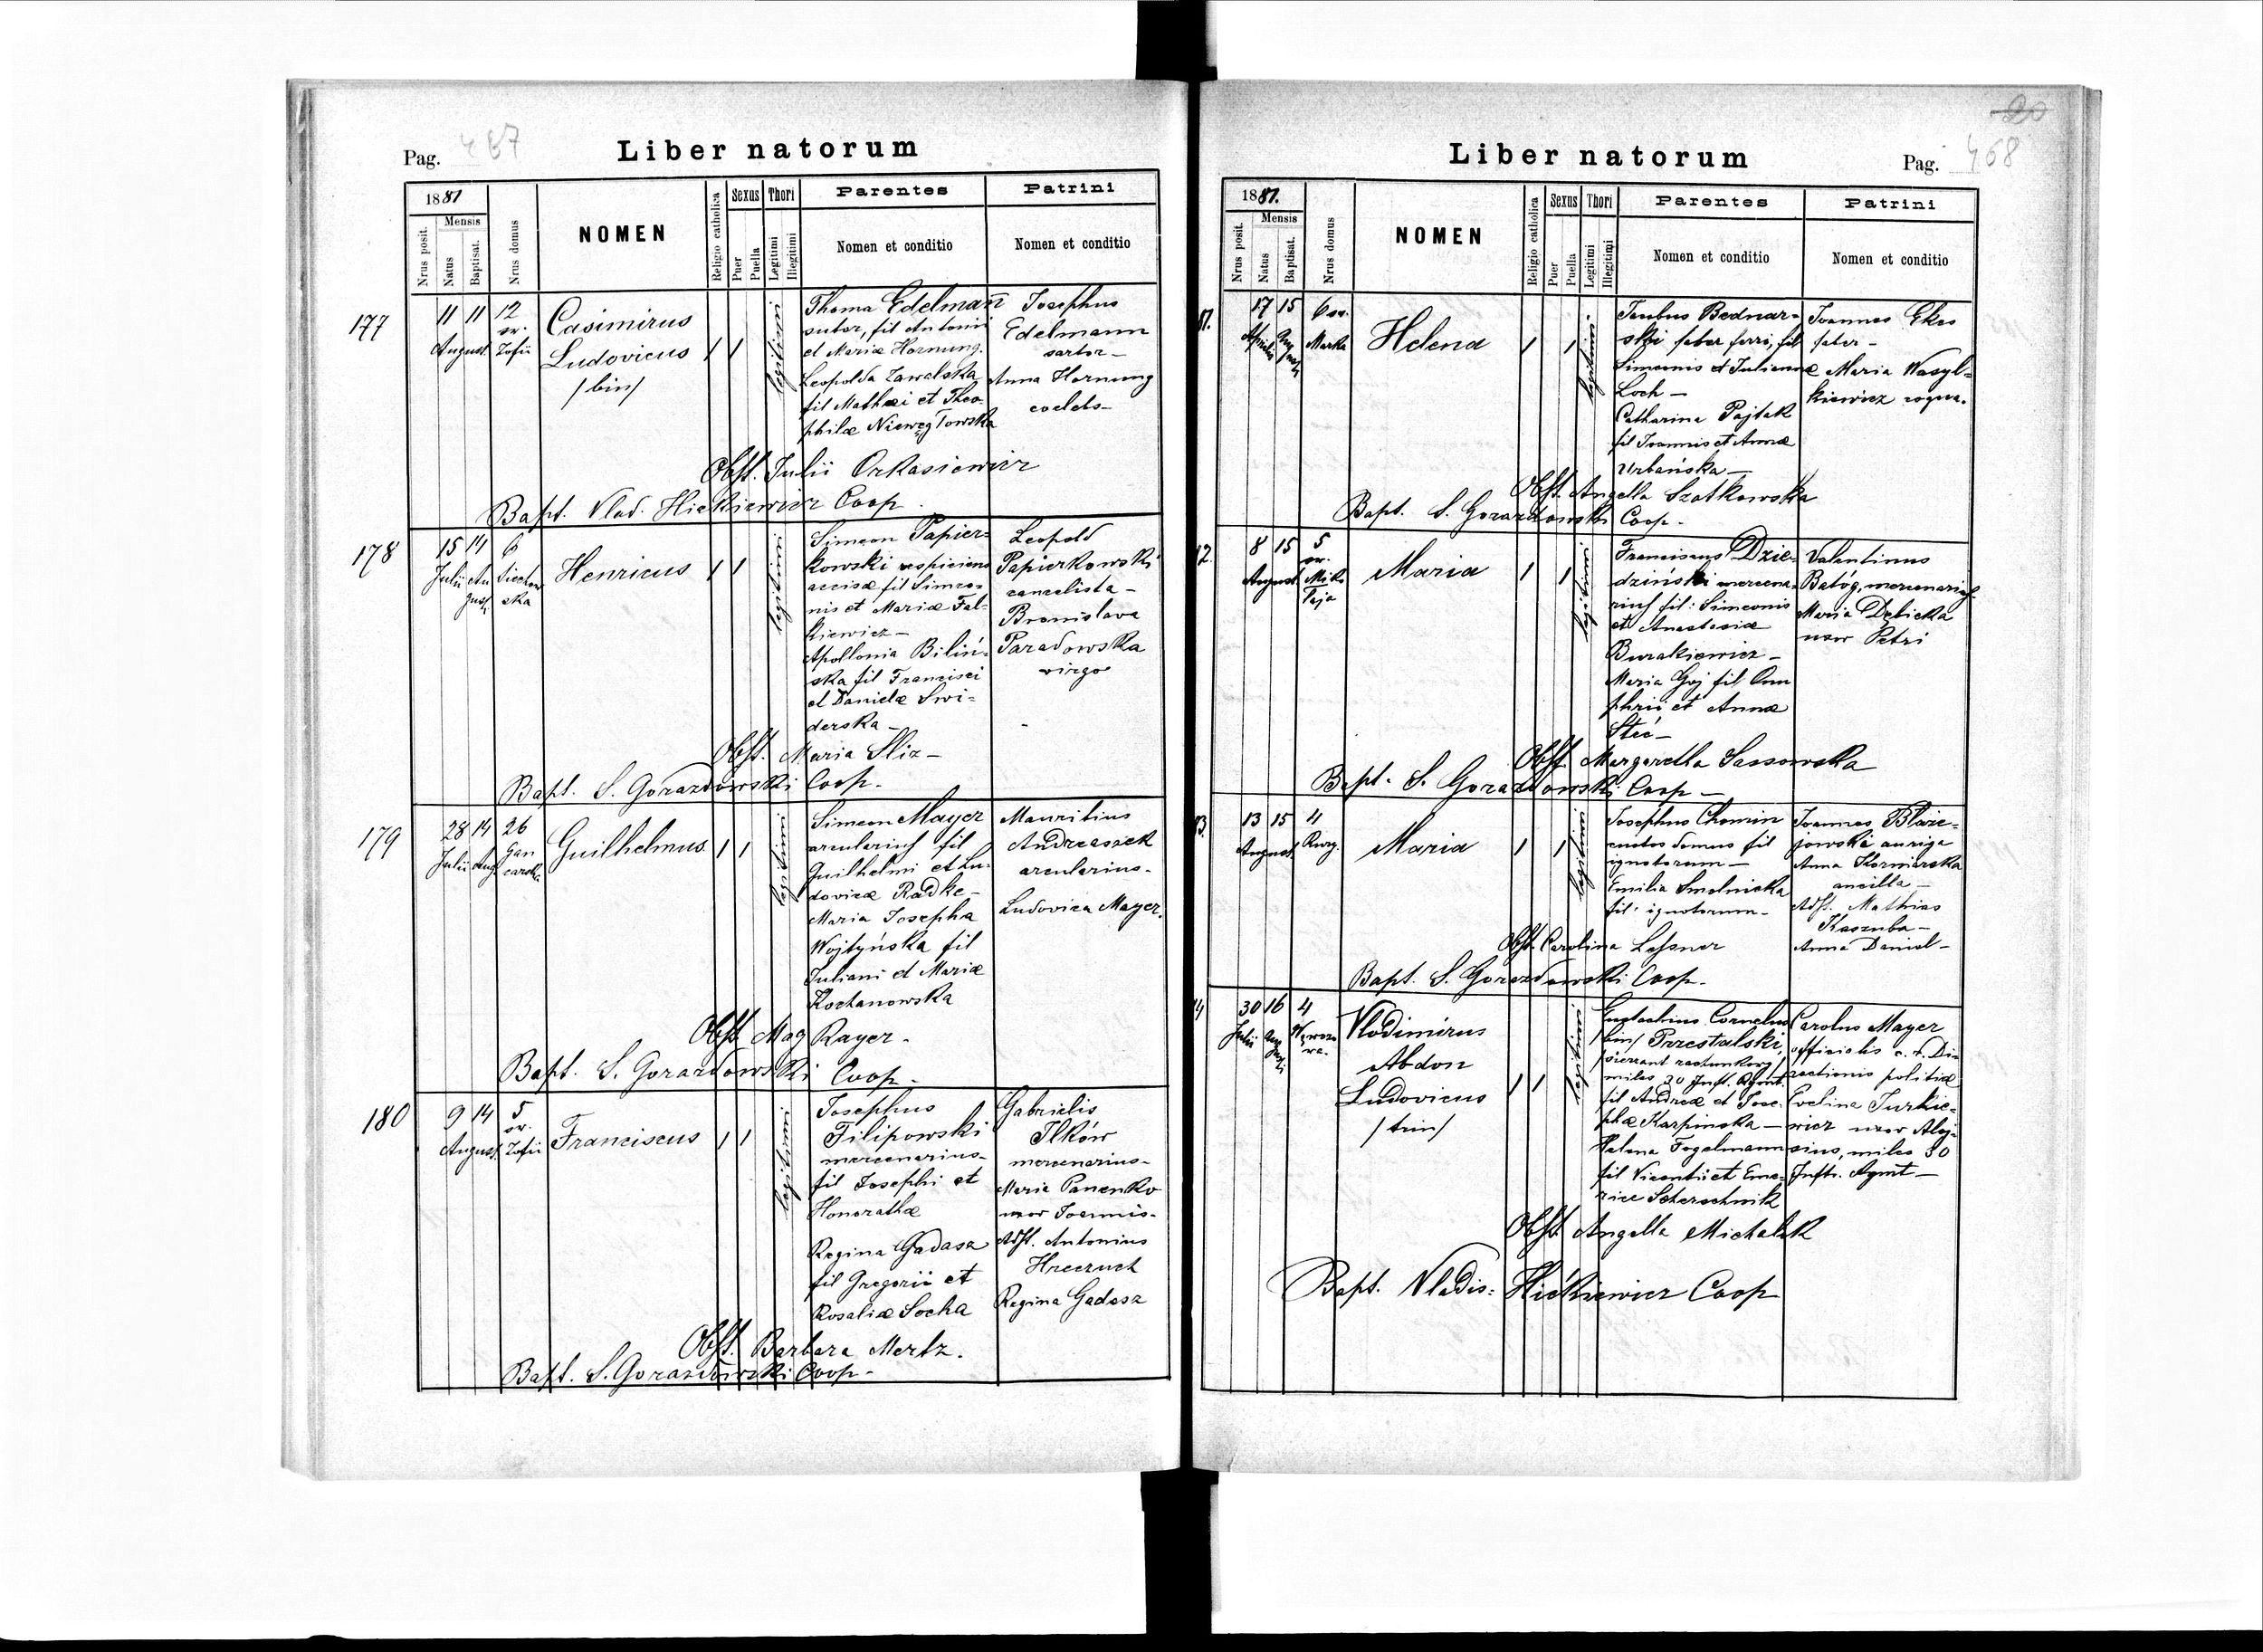 Pag. 467
Liber natorum
1881
Mensis
Nrus posit.
Natus
Baptisat.
Nrus domus
NOMEN
Religio catholica
Sexus
Puer
Puella
Thori
Legitimi
Illegitimi
Parentes
Nomen et conditio
Patrini
Nomen et conditio
177
11 11 12
August. Zofii
Casimirus
Ludovicus
/bin/
legitimi
Thoma Edelmann
sutor, fil Antonii
et Mariæ Hornung.
Leopolda Zawalska
fil Mathæi et Theo-
philæ Niewęgłowska
Josephus
Edelmann
sartor -
Anna Hornung
coelebs -
Obst. Julii Orkasiewicz
Bapt. Vlad. Hickiewicz Coop.
178
15 14 6
Julii August
Henricus
legitimi
Simeon Papier-
kowski respiciens
accisæ fil Simeo-
nis et Mariæ Fal-
kiewicz -
Apollonia Biliń-
ska fil Francisci
et Danielæ Swi-
derska -
Leopold
Papierkowski
cancelista -
Bronislava
Paradowska
virgo
Obst. Maria Sliz -
Bapt. S. Gorazdowski Coop.
179
28 14 26
Julii Aug Gan
carska
Guilhelmus
legitimi
Simeon Mayer
arcularius fil
Guilhelmi et Lu-
dovicæ Radke -
Maria Josepha
Wojtyńska fil
Juliani et Mariæ
Kochanowska
Mauritius
Andreaszek
arcularius -
Ludovica Mayer.
Obst. Mag Rayer -
Bapt. S. Gorazdowski Coop -
180
9 14 5
August. Zofii
Franciscus
legitimi
Josephus
Filipowski
mercenarius -
fil Josephi et
Honorathæ
Regina Gadasz
fil Gregorii et
Rosaliæ Socha
Gabrielis
Ilków
mercenarius -
Maria Panenko
uxor Joannis -
Adst. Antonius
Regina Gadasz
Obst. Barbara Mertz.
Bapt. S. Gorazdowski Coop -
20
Liber natorum
Pag. 468
1881.
Mensis
Nrus posit.
Natus
Baptisat.
Nrus domus
NOMEN
Religio catholica
Sexus
Puer
Puella
Thori
Legitimi
Illegitimi
Parentes
Nomen et conditio
Patrini
Nomen et conditio
17 15 6 sv.
Aprilis Augusti Marka
Helena
legitimi
Jacobus Bednar-
ski faber ferri, fil
Simeonis et Julianæ
Loch -
Catharina Pajtak
fil Joannis et Annæ
Urbańska -
Joannes Ekes
faber -
Maria Wasyl-
kiewicz
Obst. Angella Szatkowska
Bapt. S. Gorazdowski Coop -
8 15 5
August. sv. Miko
łaja
Maria
legitimi
Franciscus Dzie-
dziński mercena-
rius fil: Simeonis
et Anastasiæ
Burakiewicz -
Maria Goj fil Onu
phrii et Annæ
Steć -
Valentinus
Batóg, mercenarius
Maria Dębicka
uxor Petri
Obst. Margaretha Sassowska
Bapt. S. Gorazdowski Coop -
13 15 4
August.
Maria
legitimi
Josephus Chomin
custos domus fil
ignotorum -
Emilia Smolnicka
fil: ignotorum -
Joannes Błaże-
jowski auriga
Anna Kormarska
ancilla -
Adst. Mathias
Kaszuba -
Anna Daniel -
Obst. Carolina Lessner
Bapt. S. Gorazdowski Coop.
30 16 4
Julii Augusti
Vlodimirus
Abdon
Ludovicus
/trin/
legitimi
Eustachius Cornelius
/bin/ Przestalski,
miles 30 Inft. Rgmt.
fil Andreæ et Jose-
phæ Karpinska -
Helena Fogelmann
fil Vicentii et Eme-
ricæ Scherschnik
Carolus Mayer
officialis c. r. Di-
rectionis politiæ
Evelina Jurkie-
wicz uxor Aloj-
sius, miles 30
Inftr. Rgmt -
Obst. Angella Michalik
Bapt. Vladis: Hickiewicz Coop